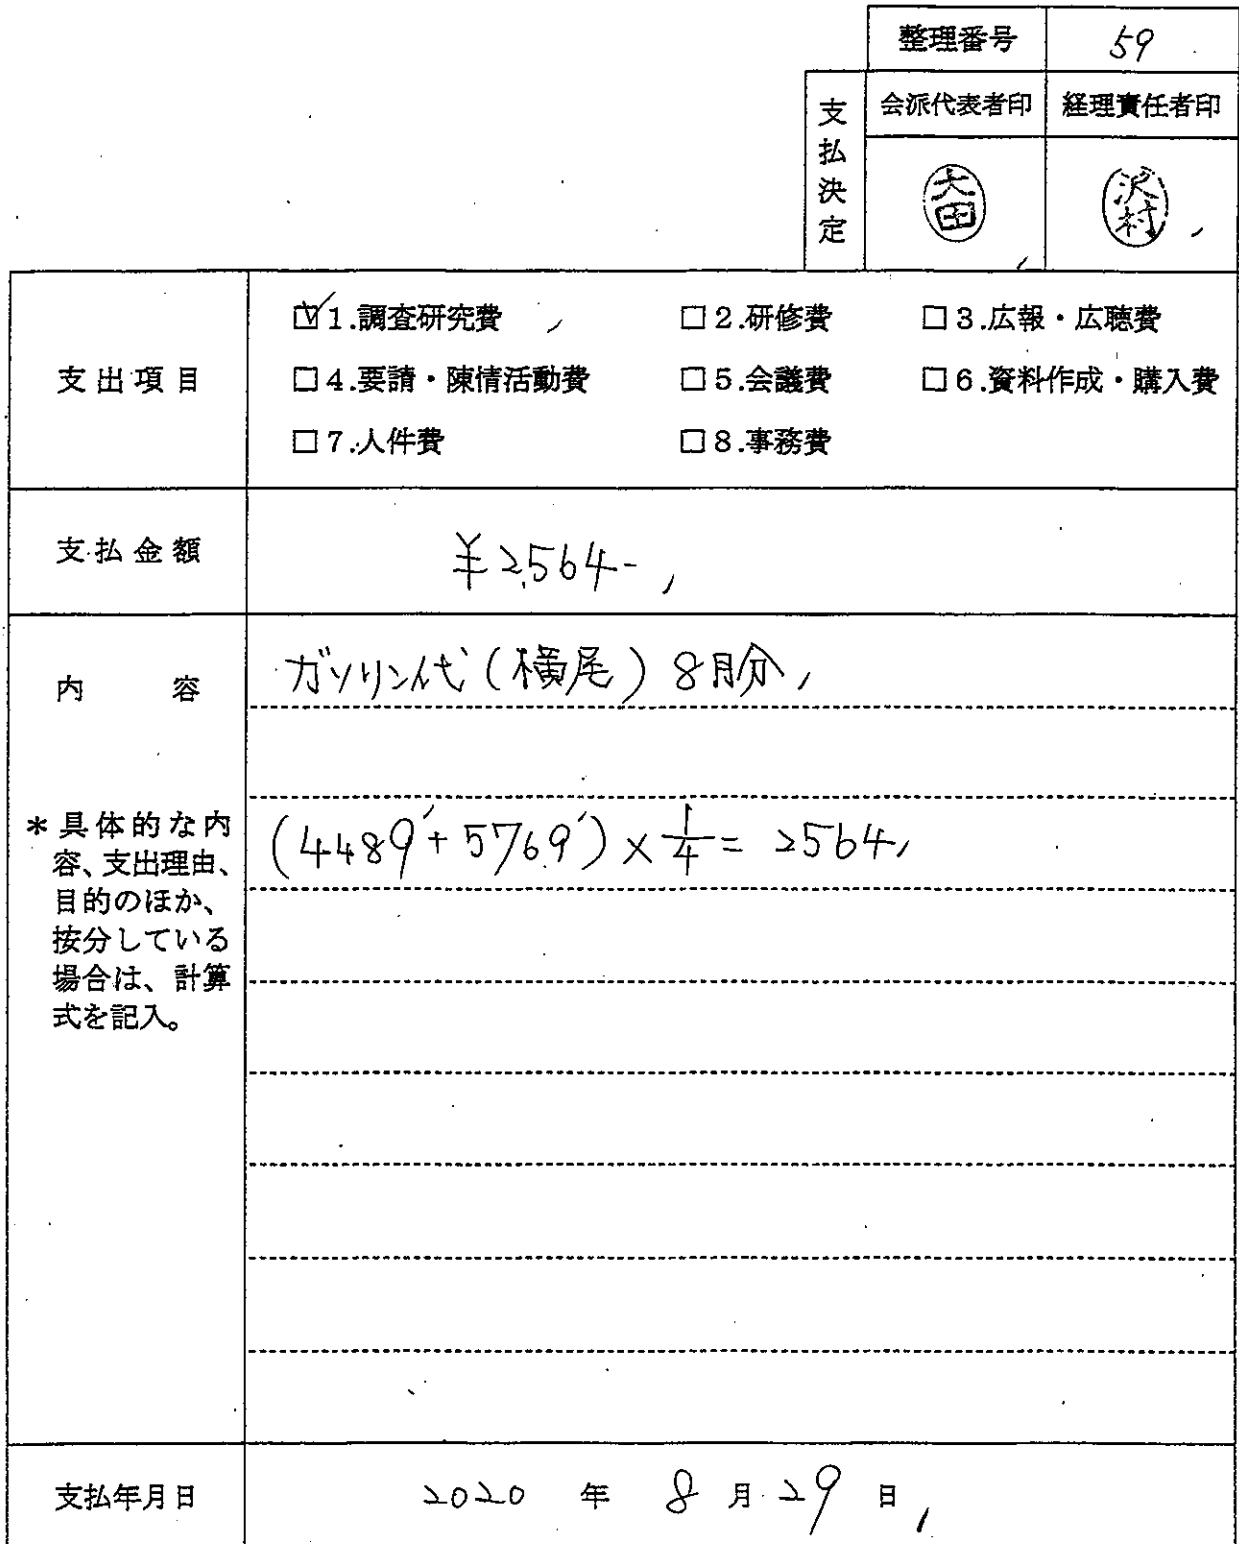 整理番号 59
支払決定 会派代表者印 経理責任者印
大田 沢村
支出項目
☑1.調査研究費 □2.研修費 □3.広報・広聴費
□4.要請・陳情活動費 □5.会議費 □6.資料作成・購入費
□7.人件費 □8.事務費
支払金額 ¥2,564-
内容 ガソリン代(横尾)8月分
*具体的な内
容、支出理由、
目的のほか、
按分している
場合は、計算
式を記入。
(4489+5769)×1/4=2564
支払年月日 2020年8月29日